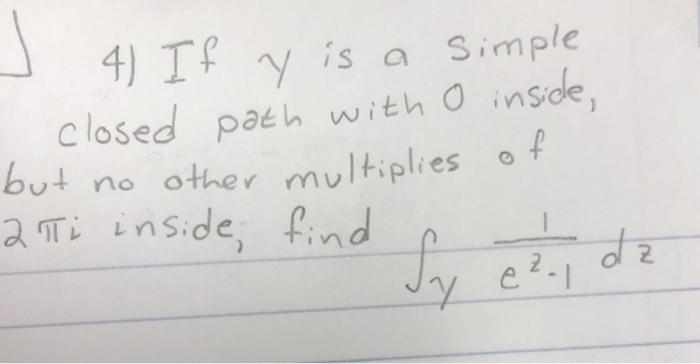 4) If γ is a simple
closed path with 0 inside,
but no other multiplies of
2πi inside, find ∫γ 1/(e^z-1) dz